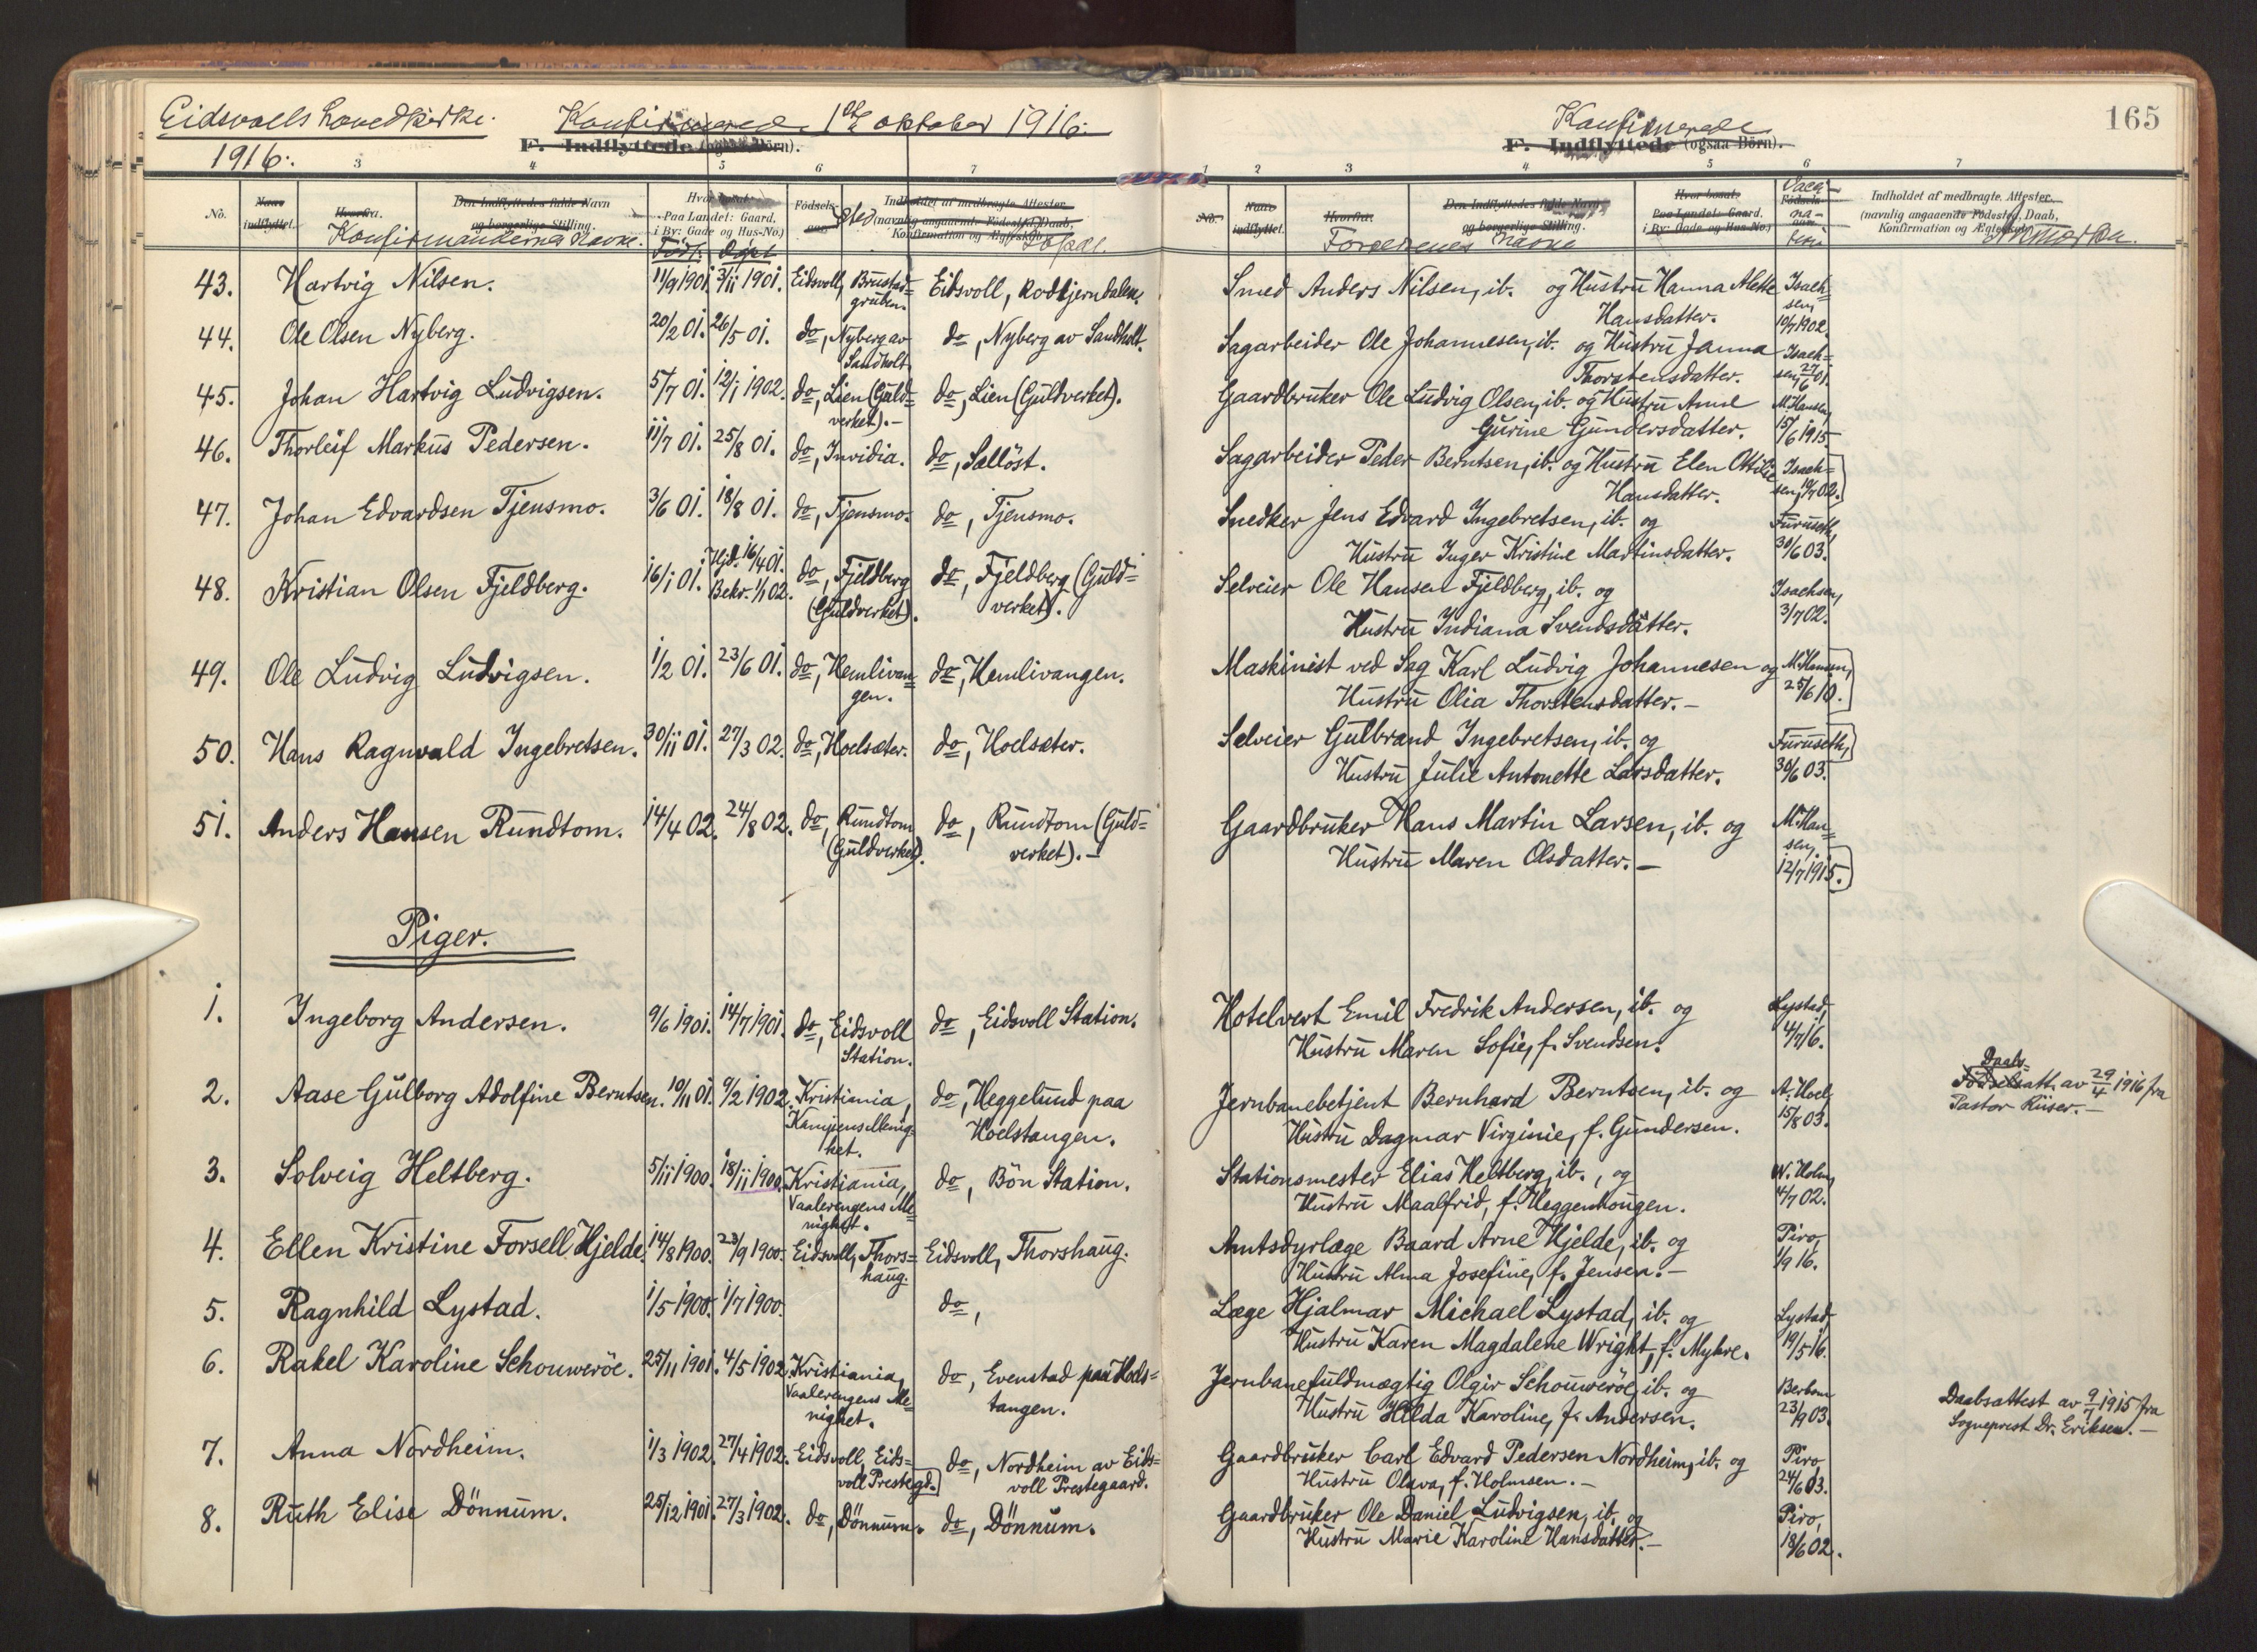 Eidsvolls hovedkirke. Konfirmerede 1ste oktober 1916.
1916.
F. Indflyttede (ogsaa Börn).
3 4 5 6 7
No. Naar indflyttet. Hvorfra. Den Indflyttedes fulde Navn og borgerlige Stilling. Hvor bosat. Paa Landet: Gaard, i By: Gade og Hus-No.) Födsels- aar Indholdet af medbragte Attester (navnlig angaaende Födested, Daab, Konfirmation og Ægteskab).
Konfirmandernes Navne. Födt. Döpt Sted Bopæl
43. Hartvig Nilsen. 11/9 1901. 3/11 1901. Eidsvoll, Brustad=gruben. Eidsvoll, Rodtjerndalen.
44. Ole Olsen Nyberg. 20/2 01. 26/5 01. do, Nyberg av Sandholt. do, Nyberg av Sandholt.
45. Johan Hartvig Ludvigsen. 5/7 01. 12/1 1902. do, Lien (Guld=verket).- do, Lien (Guldverket).
46. Thorleif Markus Pedersen. 11/7 01. 25/8 01. do, Invidia. do, Sellöst.
47. Johan Edvardsen Tjensmo. 3/6 01. 18/8 01. do, Tjensmo. do, Tjensmo.
48. Kristian Olsen Fjeldberg. 16/1 01. Hjd. 16/4 01. Bekr. 1/1 02. do, Fjeldberg (Guldverket). do, Fjeldberg (Guld=verket).
49. Ole Ludvig Ludvigsen. 1/2 01. 23/6 01. do, Hemlivan=gen. do, Hemlivangen.
50. Hans Ragnvald Ingebretsen. 30/11 01. 27/3 02. do, Hoelsæter. do, Hoelsæter.
51. Anders Hansen Rundtom. 14/4 02. 24/8 02. do, Rundtom (Guldverket). do, Rundtom (Guld=verket).-
Piger.
1. Ingeborg Andersen. 9/6 1901. 14/7 1901. do, Eidsvoll Station. do, Eidsvoll Station.
2. Aase Gulborg Adolfine Berntsen. 10/11 01. 9/2 1902. Kristiania, Kampens Menig=het. do, Heggelund paa Hoelstangen.
3. Solveig Heltberg. 5/11 1900. 18/11 1900. Kristiania, Vaalerengens Me=nighet. do, Bön Station.
4. Ellen Kristine Forsell Hjelde. 14/8 1900. 23/9 1900. Eidsvoll, Thors=haug. Eidsvoll, Thorshaug.
5. Ragnhild Lystad. 1/5 1900. 1/7 1900. do,
6. Rakel Karoline Schouweröe. 25/11 1901. 4/5 1902. Kristiania, Vaalerengens Me=nighet. do, Evenstad paa Hoels=tangen.
7. Anna Nordheim. 1/3 1902. 27/4 1902. Eidsvoll, Eids=voll Prestegd. do, Nordheim av Eids=voll Prestegaard.
8. Ruth Elise Dönnum. 25/12 1901. 27/3 1902. do, Dönnum. do, Dönnum.
165
Konfirmerede
F. Indflyttede (ogsaa Börn).
1 2 3 4 5 6 7
No. Naar indflyttet. Hvorfra. Den Indflyttedes fulde Navn og borgerlige Stilling. Hvor bosat. Paa Landet: Gaard, i By: Gade og Hus-No.) Födsels- aar Indholdet af medbragte Attester (navnlig angaaende Födested, Daab, Konfirmation og Ægteskab).
Forældrenes Navne Anmærkn.
Smed Anders Nilsen, ib. og Hustru Hanna Alette Hansdatter. Isach=sen, 10/7 1902.
Sagarbeider Ole Johannesen, ib. og Hustru Janna Thorstensdatter. Isach=sen, 27/6 01.
Gaardbruker Ole Ludvig Olsen, ib. og Hustru Anne Gurine Gundersdatter. M. Hansen, 15/6 1915.
Sagarbeider Peder Berntsen, ib. og Hustru Elen Ottilie Hansdatter. Isach=sen, 10/7 02.
Snedker Jens Edvard Ingebretsen, ib. og Hustru Inger Kristine Martinsdatter. Furuseth, 30/6 03.
Selveier Ole Hansen Fjeldberg, ib. og Hustru Indiana Svendsdatter. Isachsen, 3/7 02.
Maskinist ved Sag Karl Ludvig Johannesen og Hustru Olia Thorstensdatter.- M. Hansen, 25/6 10.
Selveier Gulbrand Ingebretsen, ib. og Hustru Julie Antonette Larsdatter. Furuseth, 30/6 03.
Gaardbruker Hans Martin Larsen, ib. og Hustru Maren Olsdatter.- M. Han=sen, 12/7 1915.
Hotelvert Emil Fredrik Andersen, ib. og Hustru Maren Sofie, f. Svendsen. Lystad, 4/7 16.
Jernbanebetjent Bernhard Berntsen, ib. og Hustru Dagmar Virginie, f. Gundersen. A. Hoel, 15/8 03. Daabs Födselsatt. av 29/4 1916 fra Pastor Riiser.-
Stationsmester Elias Heltberg, ib., og Hustru Maalfrid, f. Heggenhougen. W. Holm, 4/7 02.
Amtsdyrlæge Baard Arne Hjelde, ib. og Hustru Alma Josefine, f. Jensen.- Piro, 1/9 16.
Læge Hjalmar Michael Lystad, ib. og Hustru Karen Magdalene Wright, f. Myhre. Lystad, 19/5 16.
Jernbanefuldmægtig Olgir Schouweröe, ib. og Hustru Hilda Karoline, f. Andersen. 23/9 03. Daabsattest av 9/7 1915 fra Sogneprest Dr. Eriksen.-
Gaardbruker Carl Edvard Pedersen Nordheim, ib. og Hustru Olava, f. Holmsen.- Piro, 24/6 03.
Gaardbruker Ole Daniel Ludvigsen, ib. og Hustru Marie Karoline Hansdatter.- Piro, 18/6 02.